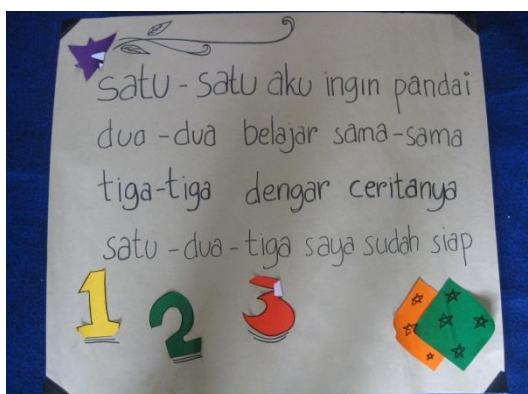 satu - satu aku ingin pandai
dua - dua belajar sama-sama
tiga-tiga dengar ceritanya
satu - dua - tiga saya sudah siap
1 2 3